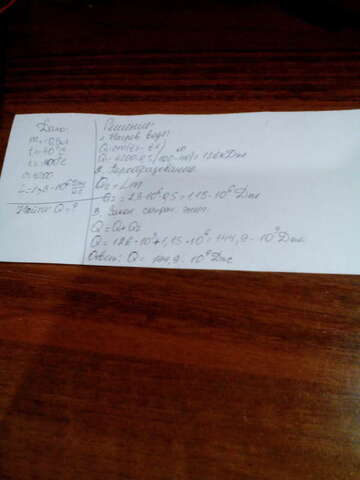 Дано:
m = 0,5
t = 40°C
t = 100°C
c = 4200
L = 2,3 · 10⁶ Дж/кг
Найти: Q = ?
Решение:
1. Нагрев воды
Q = cm(t₂ - t₁)
Q = 4200 · 0,5 (100-40) = 126 кДж
2. Парообразование
Q₂ = Lm
Q₂ = 2,3 · 10⁶ · 0,5 = 1,15 · 10⁶ Дж
3. Закон сохран. энег.
Q = Q₁ + Q₂
Q = 126 · 10³ + 1,15 · 10⁶ = 144,9 · 10³ Дж
Ответ: Q = 144,9 · 10³ Дж